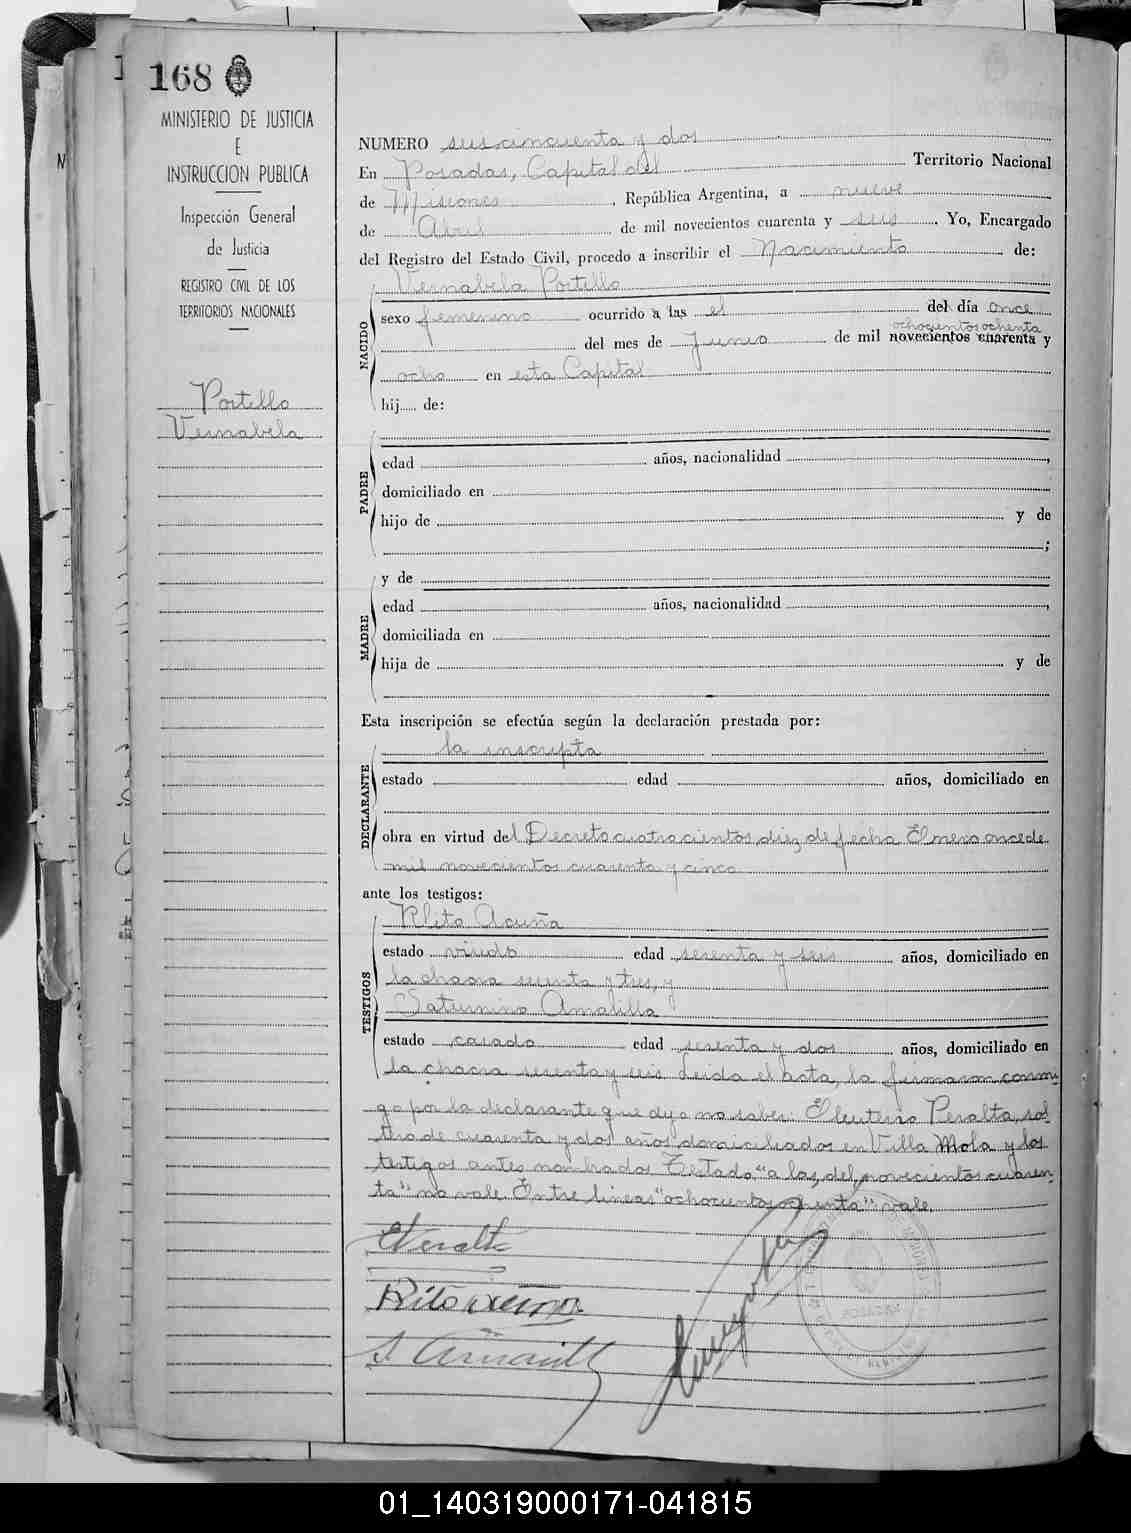 168
MINISTERIO DE JUSTICIA
E
INSTRUCCION PUBLICA
Inspección General
de Justicia
REGISTRO CIVIL DE LOS
TERRITORIOS NACIONALES
Portillo
Vernabela
NUMERO seiscincuenta y dos
En Posadas, Capital del Territorio Nacional
de Misiones, República Argentina, a nueve
de Abril de mil novecientos cuarenta y seis. Yo, Encargado
del Registro del Estado Civil, procedo a inscribir el Nacimiento de:
Vernabela Portillo
NACIDO
sexo femenino ocurrido a las el del día once
ochocientos ochenta
del mes de Junio de mil novecientos cuarenta y
ocho en esta Capital
hij de:
PADRE
edad años, nacionalidad ,
domiciliado en
hijo de y de
;
y de
MADRE
edad años, nacionalidad ,
domiciliada en
hija de y de
Esta inscripción se efectúa según la declaración prestada por:
la inscripta
DECLARANTE
estado edad años, domiciliado en
obra en virtud del Decreto cuatrocientos diez de fecha Enero once de
mil novecientos cuarenta y cinco
ante los testigos:
Rito Acuña
TESTIGOS
estado viudo edad sesenta y seis años, domiciliado en
la chacra sesenta y tres, y
Saturnino Amarilla
estado casado edad sesenta y dos años, domiciliado en
la chacra sesenta y seis. Leida el acta, la firmaron conmi-
go por la declarante que dijo no saber: Eleuterio Peralta, sol
tero de cuarenta y dos años domiciliados en Villa Mola y los
testigos antes nombrados Testado: "a las, del, novecientos cuaren-
ta" no vale. Entre lineas "ochocientos ochenta": vale
E Peralta
Rito Acuña
S. Amarilla
01_140319000171-041815